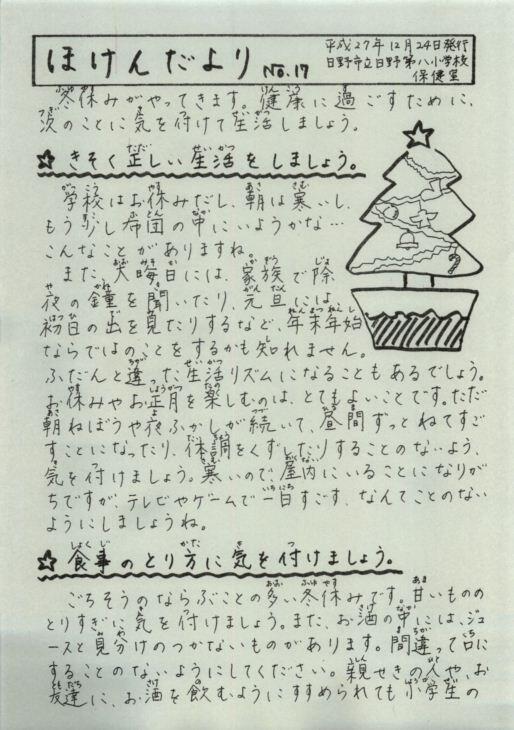 ほけんだより No.17
平成27年12月24日発行
日野市立日野第八小学校
保健室
冬休みがやってきます。健康に過ごすために、
次のことに気を付けて生活しましょう。
☆きそく正しい生活をしましょう。
学校はお休みだし、朝は寒いし、
もう少し布団の中にいようかな…
こんなことがありますね。
また、大晦日には、家族で除
夜の鐘を聞いたり、元旦には、
初日の出を見たりするなど、年末年始
ならではのことをするかも知れません。
ふだんと違った生活リズムになることもあるでしょう。
お休みやお正月を楽しむのは、とてもよいことです。ただ
朝ねぼうや夜ふかしが続いて、昼間ずっとねてすご
すことになったり、体調をくずしたりすることのないよう、
気を付けましょう。寒いので、屋内にいることになりが
ちですが、テレビやゲームで一日すごす、なんてことのない
ようにしましょうね。
☆食事のとり方に気を付けましょう。
ごちそうのならぶことの多い冬休みです。甘いものの
とりすぎに気を付けましょう。また、お酒の中には、ジュ
ースと見分けのつかないものがあります。間違って口に
することのないようにしてください。親せきの人や、お
友達に、お酒を飲むようにすすめられても小学生の